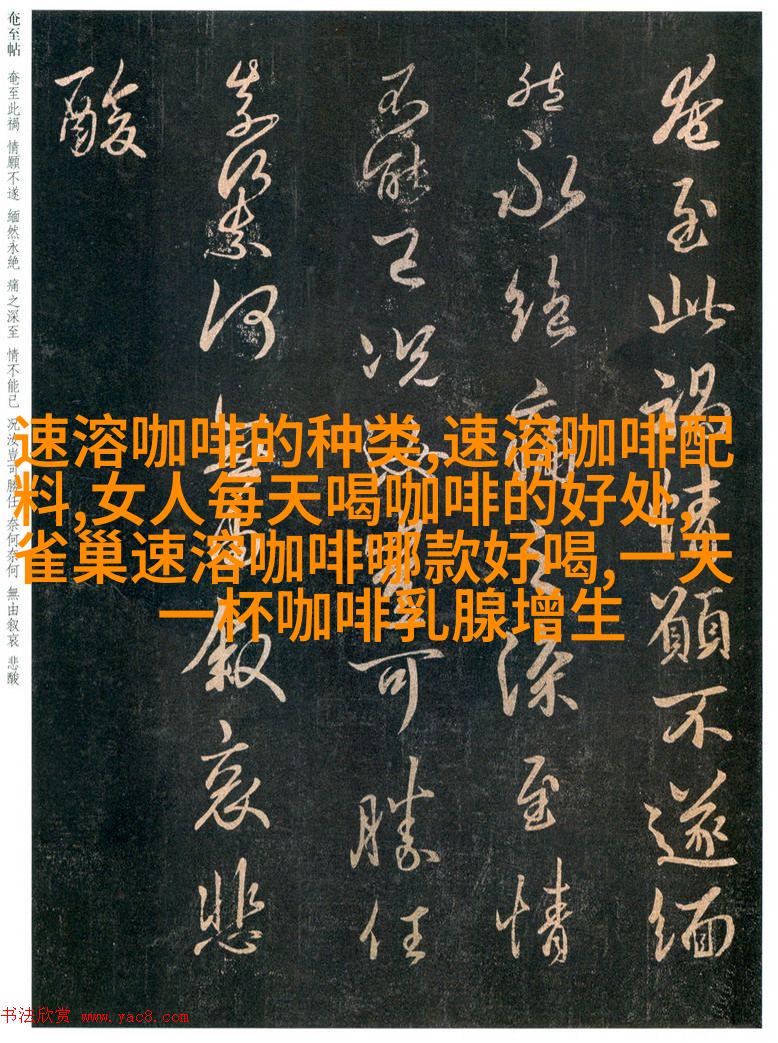 奄至此禍情願不遂緬
然永絶痛之深至情
不能已况汝豈可勝任
奈何奈何無由叙哀悲
酸
奄至帖 奄至此禍 情願不遂 緬然永絶 痛之深至 情不能已 况汝豈可勝任 奈何奈何 無由叙哀 悲酸
速溶咖啡的种类,速溶咖啡配
料,女人每天喝咖啡的好处,
雀巢速溶咖啡哪款好喝,一天
一杯咖啡乳腺增生
书法欣赏 www.yac8.com